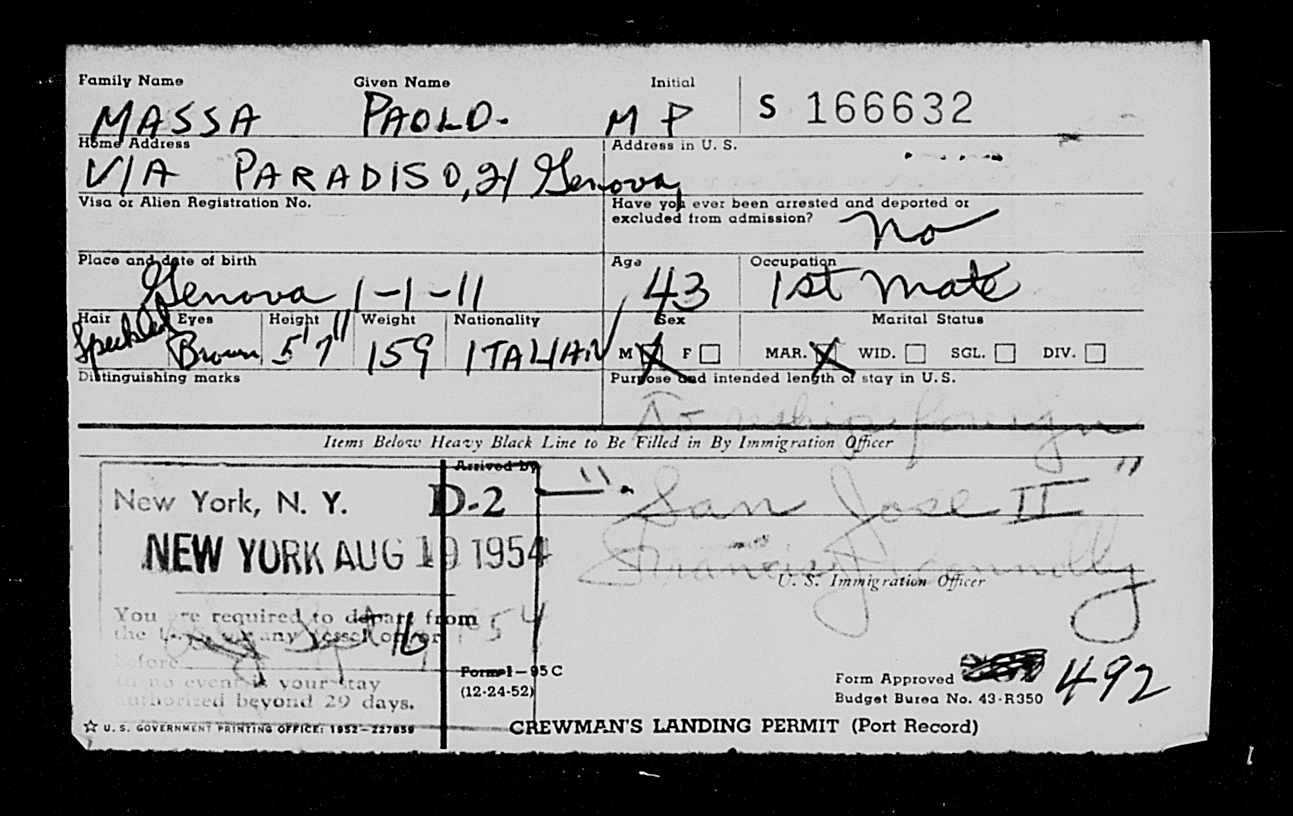 Family Name Given Name Initial
MASSA PAOLO. M P S 166632
Home Address Address in U. S.
VIA PARADISO, 21 Genova
Visa or Alien Registration No. Have you ever been arrested and deported or
excluded from admission? No
Place and date of birth Age Occupation
Genova 1-1-11 43 1st Mate
Hair Eyes Height Weight Nationality Sex Marital Status
Speckled Brown 5'7" 159 ITALIAN M F MAR. WID. SGL. DIV.
Distinguishing marks Purpose and intended length of stay in U.S.
To reship foreign
Items Below Heavy Black Line to Be Filled in By Immigration Officer
Arrived by
New York, N. Y. D-2 "San Jose II"
NEW YORK AUG 19 1954
Francis J Connolly
U. S. Immigration Officer
You are required to depart from
the U.S. on any vessel on or
Sept 16 1954
before
in no event is your stay
authorized beyond 29 days.
Form I-95 C
(12-24-52)
Form Approved
Budget Bureau No. 43-R350 492
☆ U. S. GOVERNMENT PRINTING OFFICE: 1952-227859
CREWMAN'S LANDING PERMIT (Port Record)